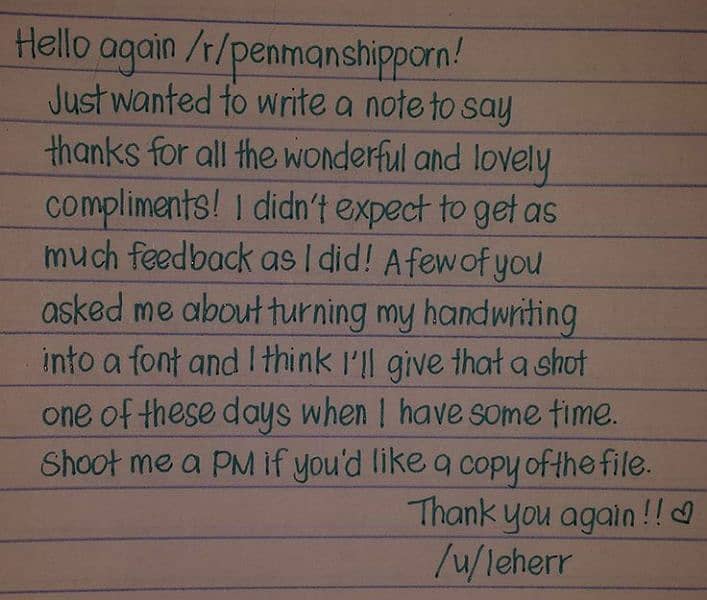 Hello again /r/penmanshipporn!
Just wanted to write a note to say
thanks for all the wonderful and lovely
compliments! I didn't expect to get as
much feedback as I did! A few of you
asked me about turning my handwriting
into a font and I think I'll give that a shot
one of these days when I have some time.
Shoot me a PM if you'd like a copy of the file.
Thank you again!! ♡
/u/leherr